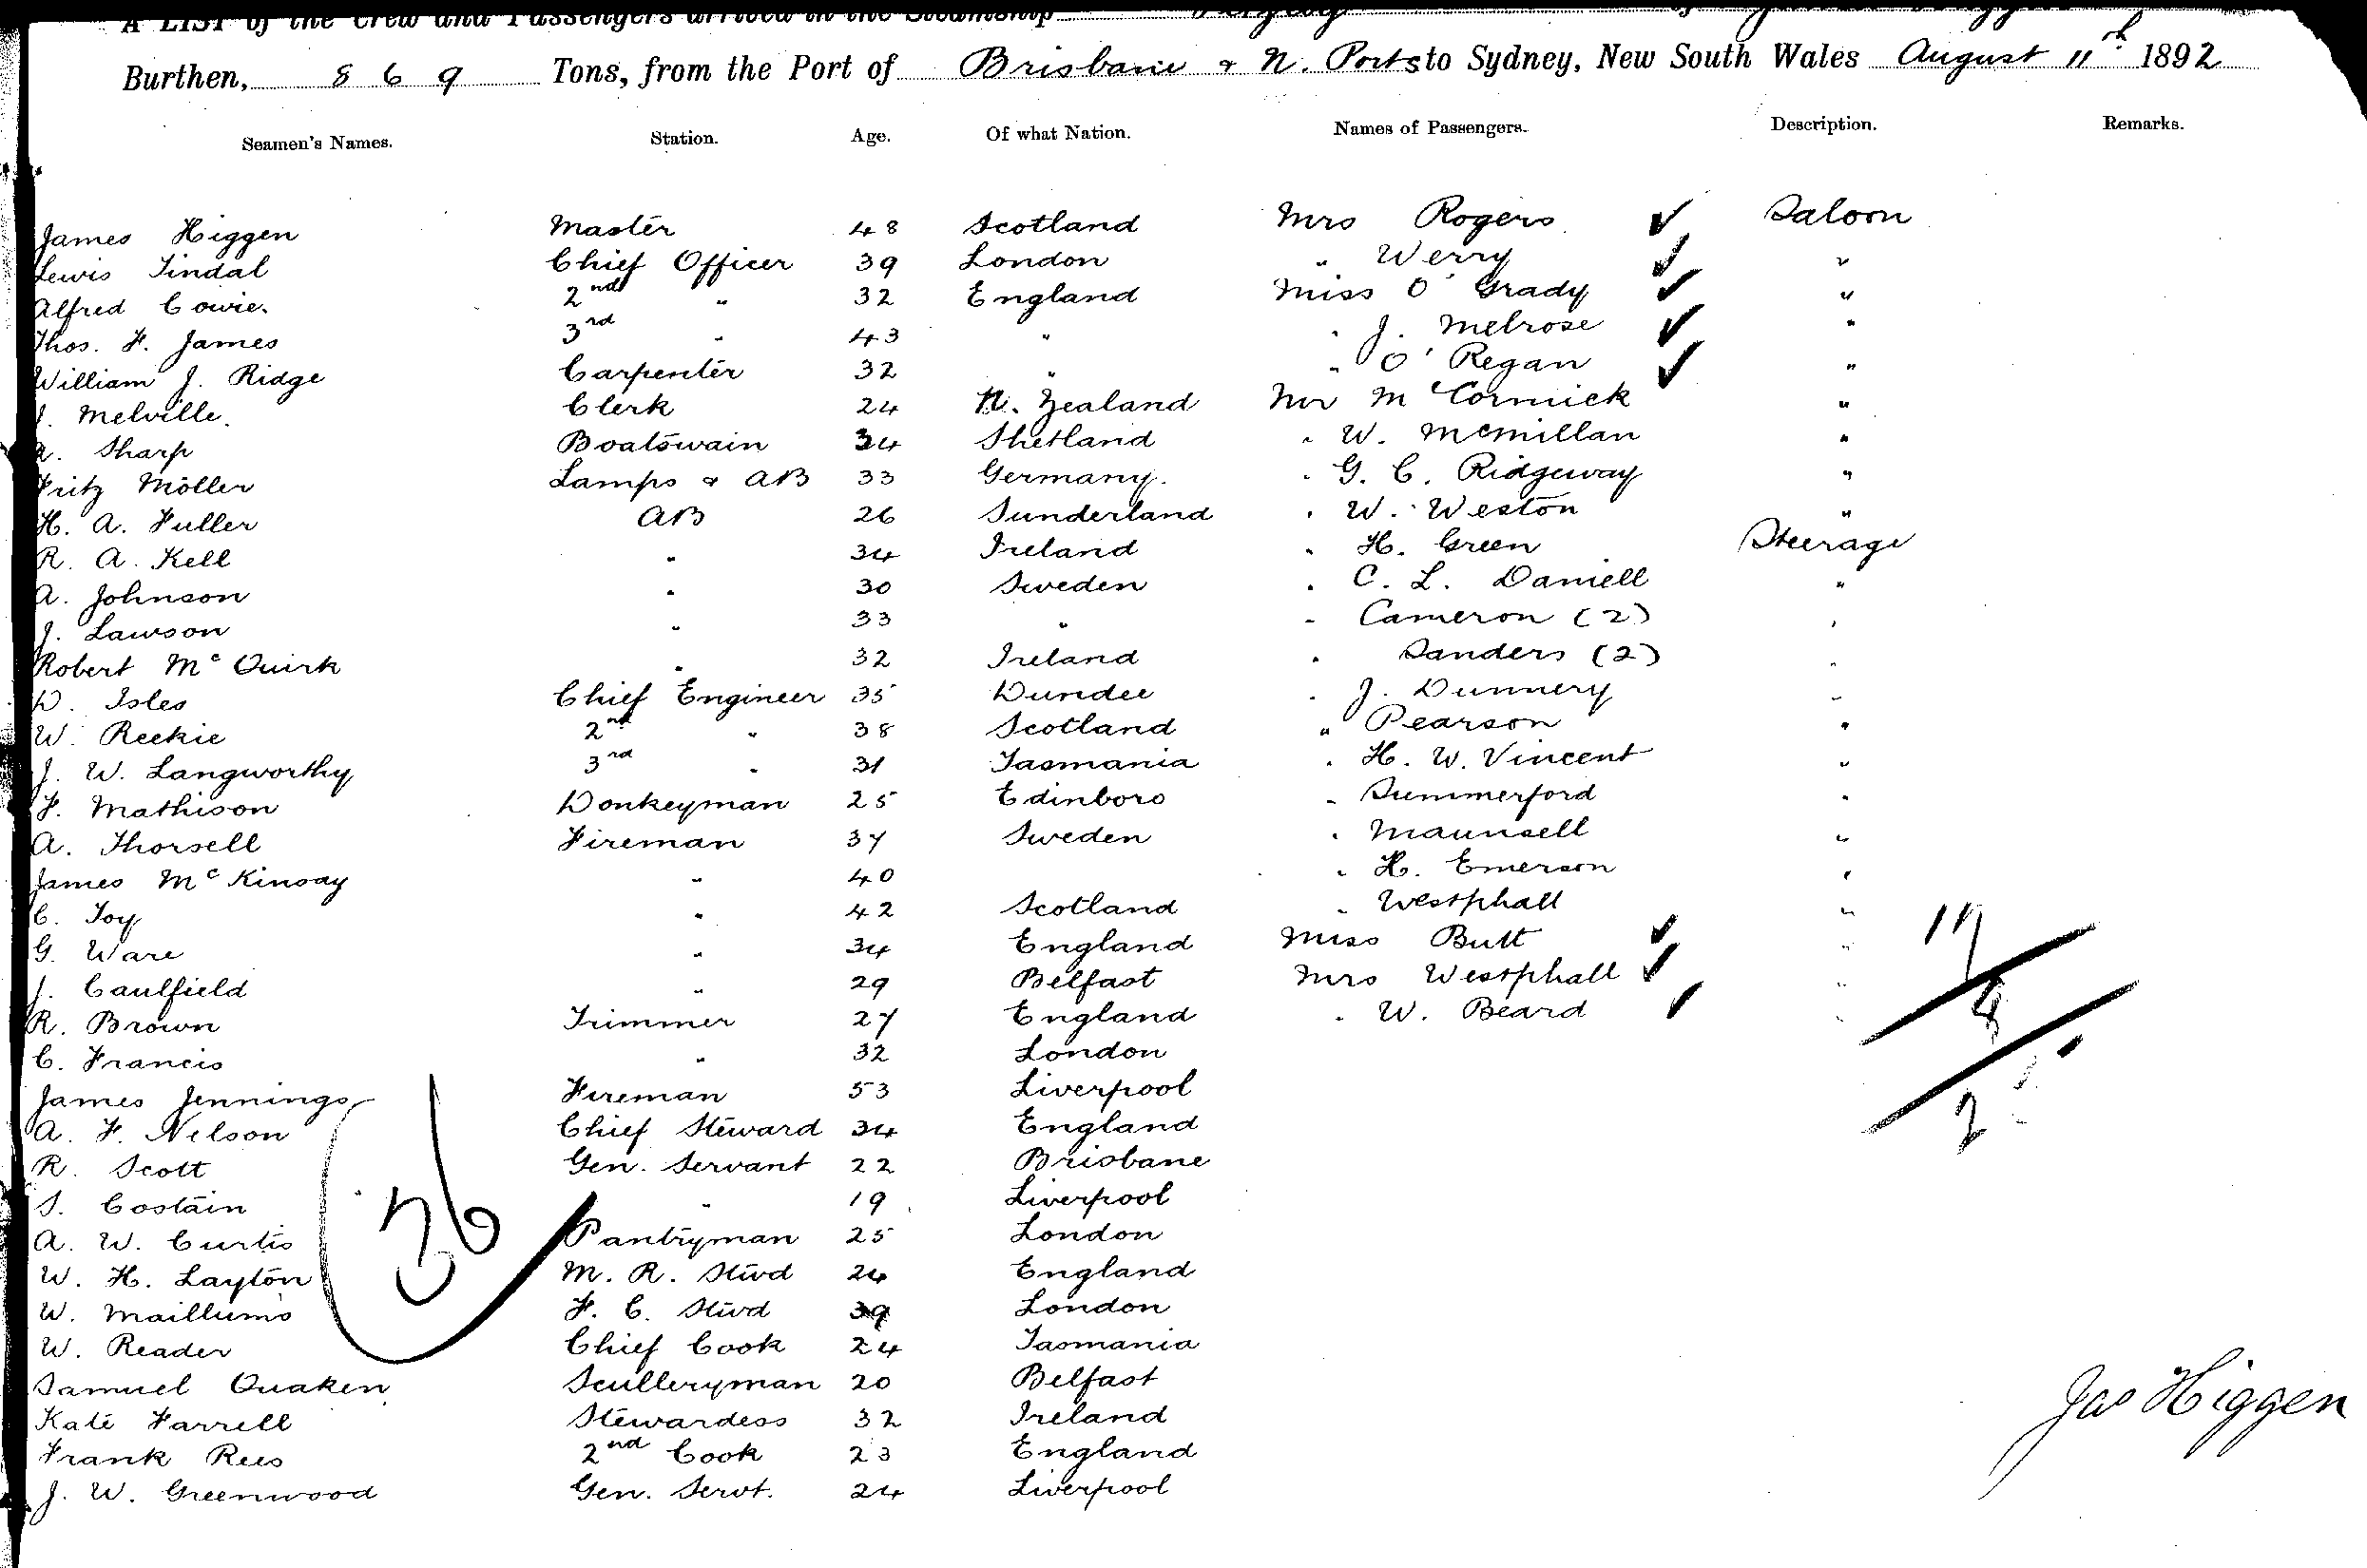 A LIST of the Crew and Passengers arrived in the Steamship of James Higgen
Burthen, 869 Tons, from the Port of Brisbane & N. Ports to Sydney, New South Wales August 11th 1892
Seamen's Names. Station. Age. Of what Nation. Names of Passengers. Description. Remarks.
James Higgen Master 48 Scotland Mrs Rogers ✓ Saloon
Lewis Tindal Chief Officer 39 London " Werry ✓ "
Alfred Cowie. 2nd " 32 England Miss O'Grady ✓ "
Thos. F. James 3rd " 43 " " J. Melrose ✓ "
William J. Ridge Carpenter 32 " " O'Regan ✓ "
J. Melville. Clerk 24 N. Zealand Mr McCormick "
A. Sharp Boatswain 34 Shetland " W. McMillan "
Fritz Möller Lamps & AB 33 Germany. " G. C. Ridgeway "
H. A. Fuller AB 26 Sunderland " W. Weston "
R. A. Kell " 34 Ireland " H. Green Steerage
A. Johnson " 30 Sweden " C. L. Daniell "
J. Lawson " 33 " " Cameron (2) "
Robert McQuirk " 32 Ireland " Sanders (2) "
D. Isles Chief Engineer 35 Dundee " J. Dunnery "
W. Reekie 2nd " 38 Scotland " Pearson "
J. W. Langworthy 3rd " 31 Tasmania " H. W. Vincent "
F. Mathison Donkeyman 25 Edinboro " Summerford "
A. Thorsell Fireman 37 Sweden " Maunsell "
James McKinsay " 40 " H. Emerson "
C. Toy " 42 Scotland " Westphall "
G. Ware " 34 England Miss Butt ✓ "
J. Caulfield " 29 Belfast Mrs Westphall ✓ "
R. Brown Trimmer 27 England " W. Beard ✓ "
C. Francis " 32 London
James Jennings Fireman 53 Liverpool
A. F. Nelson Chief Steward 34 England
R. Scott Gen. Servant 22 Brisbane
S. Costain " 19 Liverpool
A. W. Curtis Pantryman 25 London
W. H. Layton M. R. Stwd 24 England
W. Maillums F. C. Stwd 39 London
W. Reader Chief Cook 24 Tasmania
Samuel Quaken Sculleryman 20 Belfast
Kate Farrell Stewardess 32 Ireland
Frank Rees 2nd Cook 23 England
J. W. Greenwood Gen. Servt. 24 Liverpool
36
Jas Higgen